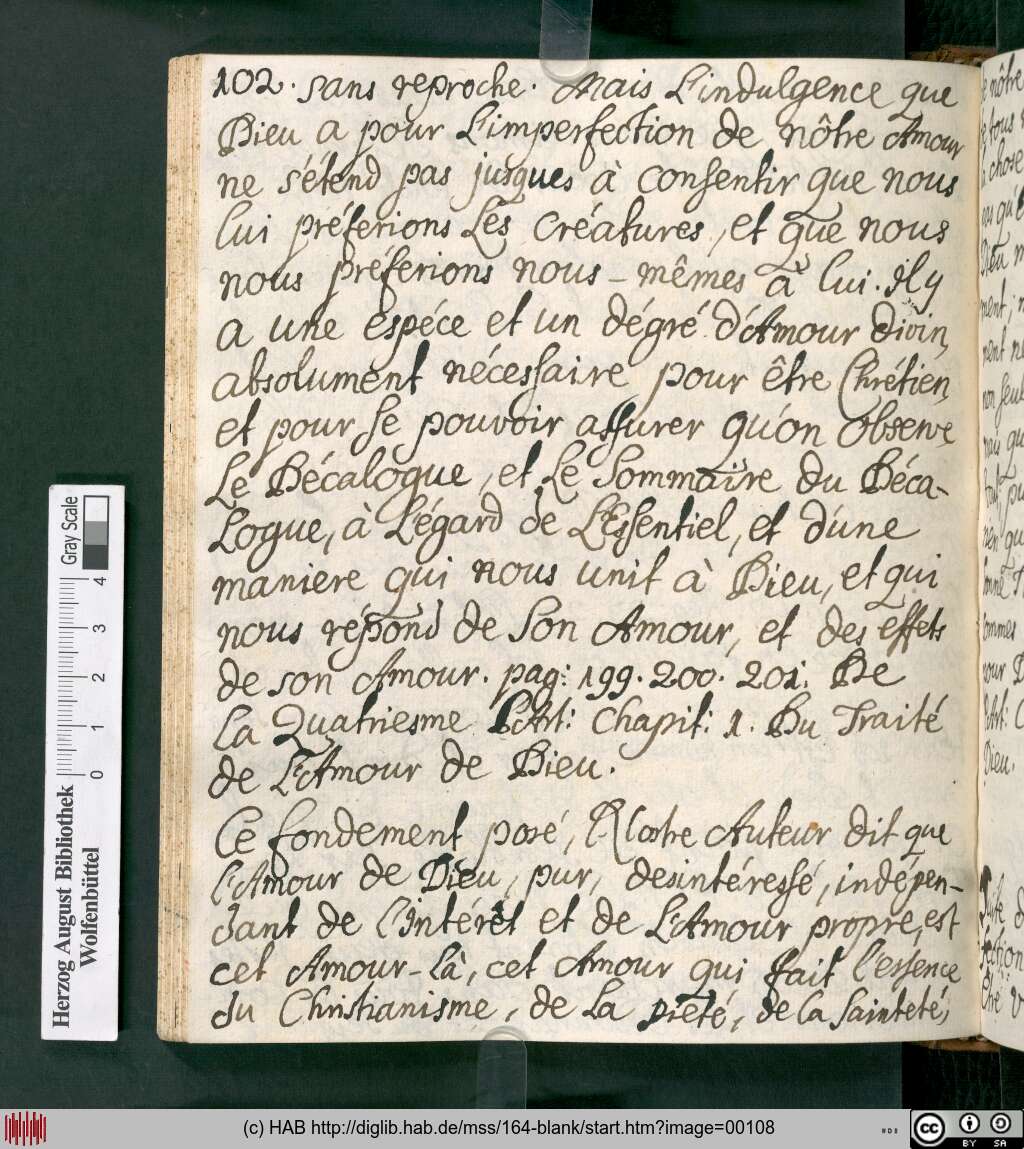 102. sans reproche. Mais L'indulgence que
Dieu a pour L'imperfection de nôtre Amour
ne s'étend pas jusques à consentir que nous
lui préferions Les créatures, et que nous
nous préferions nous-mêmes à lui. il y
a une espéce et un dégré d'Amour divin,
absolument nécessaire pour être Chrétien,
et pour se pouvoir assurer qu'on observe
Le Décalogue, et Le Sommaire du Déca-
Logue, à L'égard de L'Essentiel, et d'une
maniere qui nous unit à Dieu, et qui
nous répond de Son Amour, et des effets
de son Amour. pag: 199. 200. 201. De
La Quatriesme Chapit: 1. Du Traité
de L'Amour de Dieu.
Ce fondement posé, Nostre Auteur dit que
l'Amour de Dieu, pur, desintéressé, indépen-
dant de l'intérêt et de L'Amour propre, est
cet Amour-Là, cet Amour qui fait l'essence
du Christianisme, de La piété, de la Sainteté,
Herzog August Bibliothek
Wolfenbüttel
Gray Scale
0 1 2 3 4
(c) HAB http://diglib.hab.de/mss/164-blank/start.htm?image=00108
cc BY SA